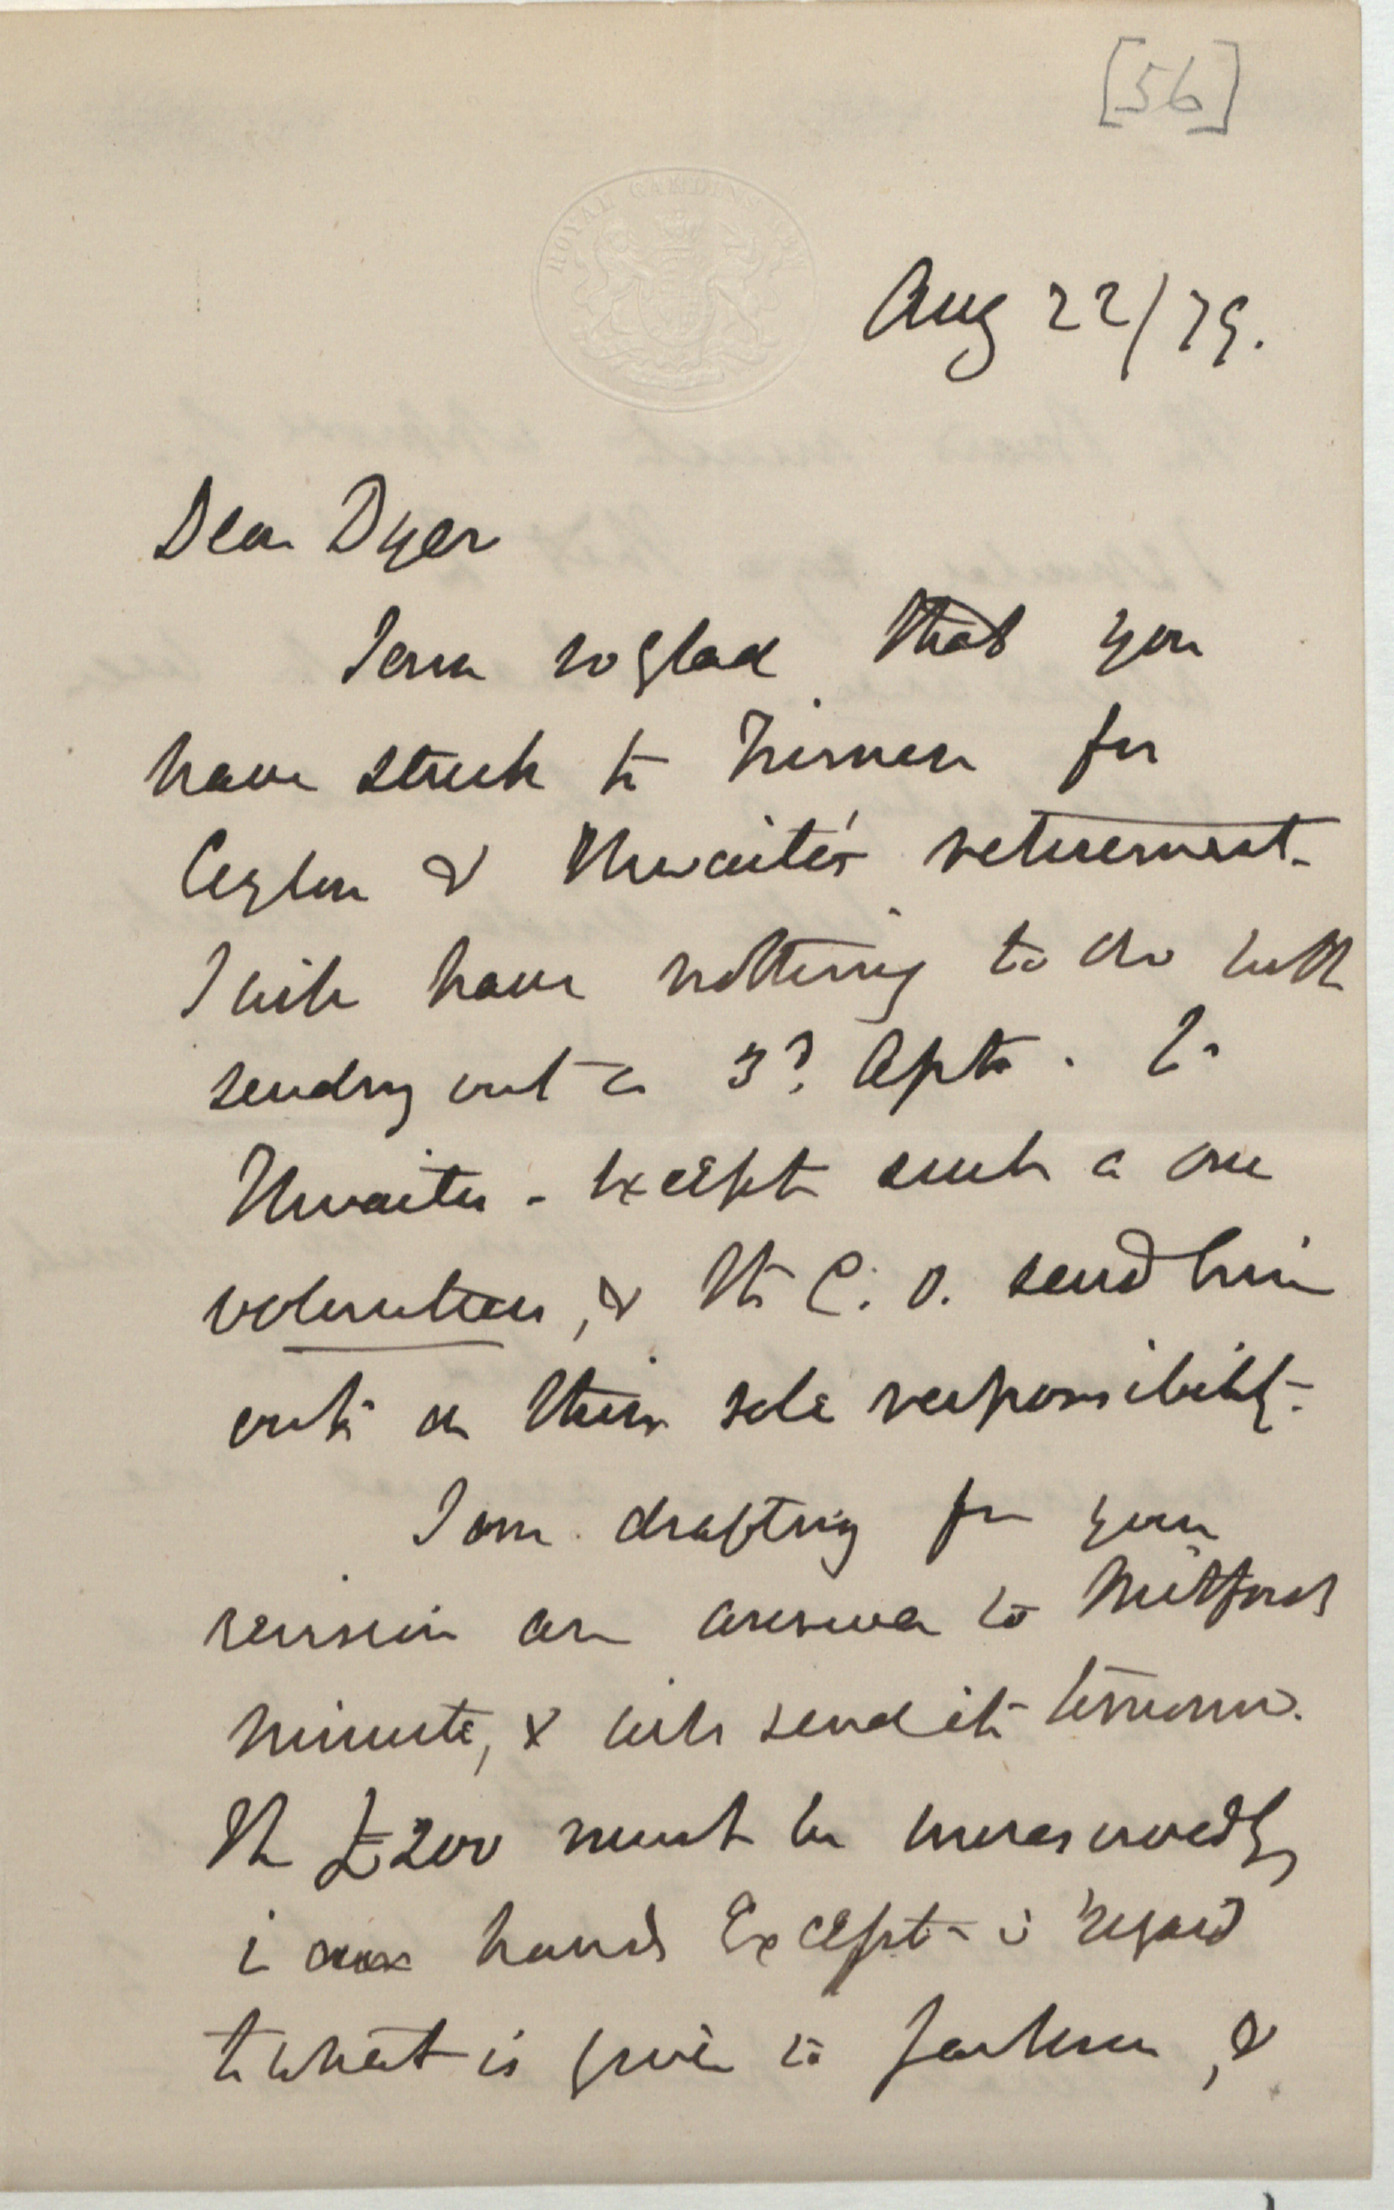 [56]
ROYAL GARDENS KEW
Aug 22/79.
Dear Dyer
I am so glad that you
have stuck to Trimen for
Ceylon & Thwaites' retirement.
I will have nothing to do with
sending out a 3d. Apt. to
Thwaites - except such a one
volunteers, & the C. O. send him
out on their sole responsibility.
I am drafting for your
revision an answer to Mitfords
minute, & will send it tomorrow.
The £200 must be unreservedly
in our hands Except in regard
to what is given to Jackson, &